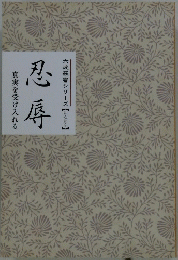 六波羅蜜シリーズ
忍辱
真実を受け入れる